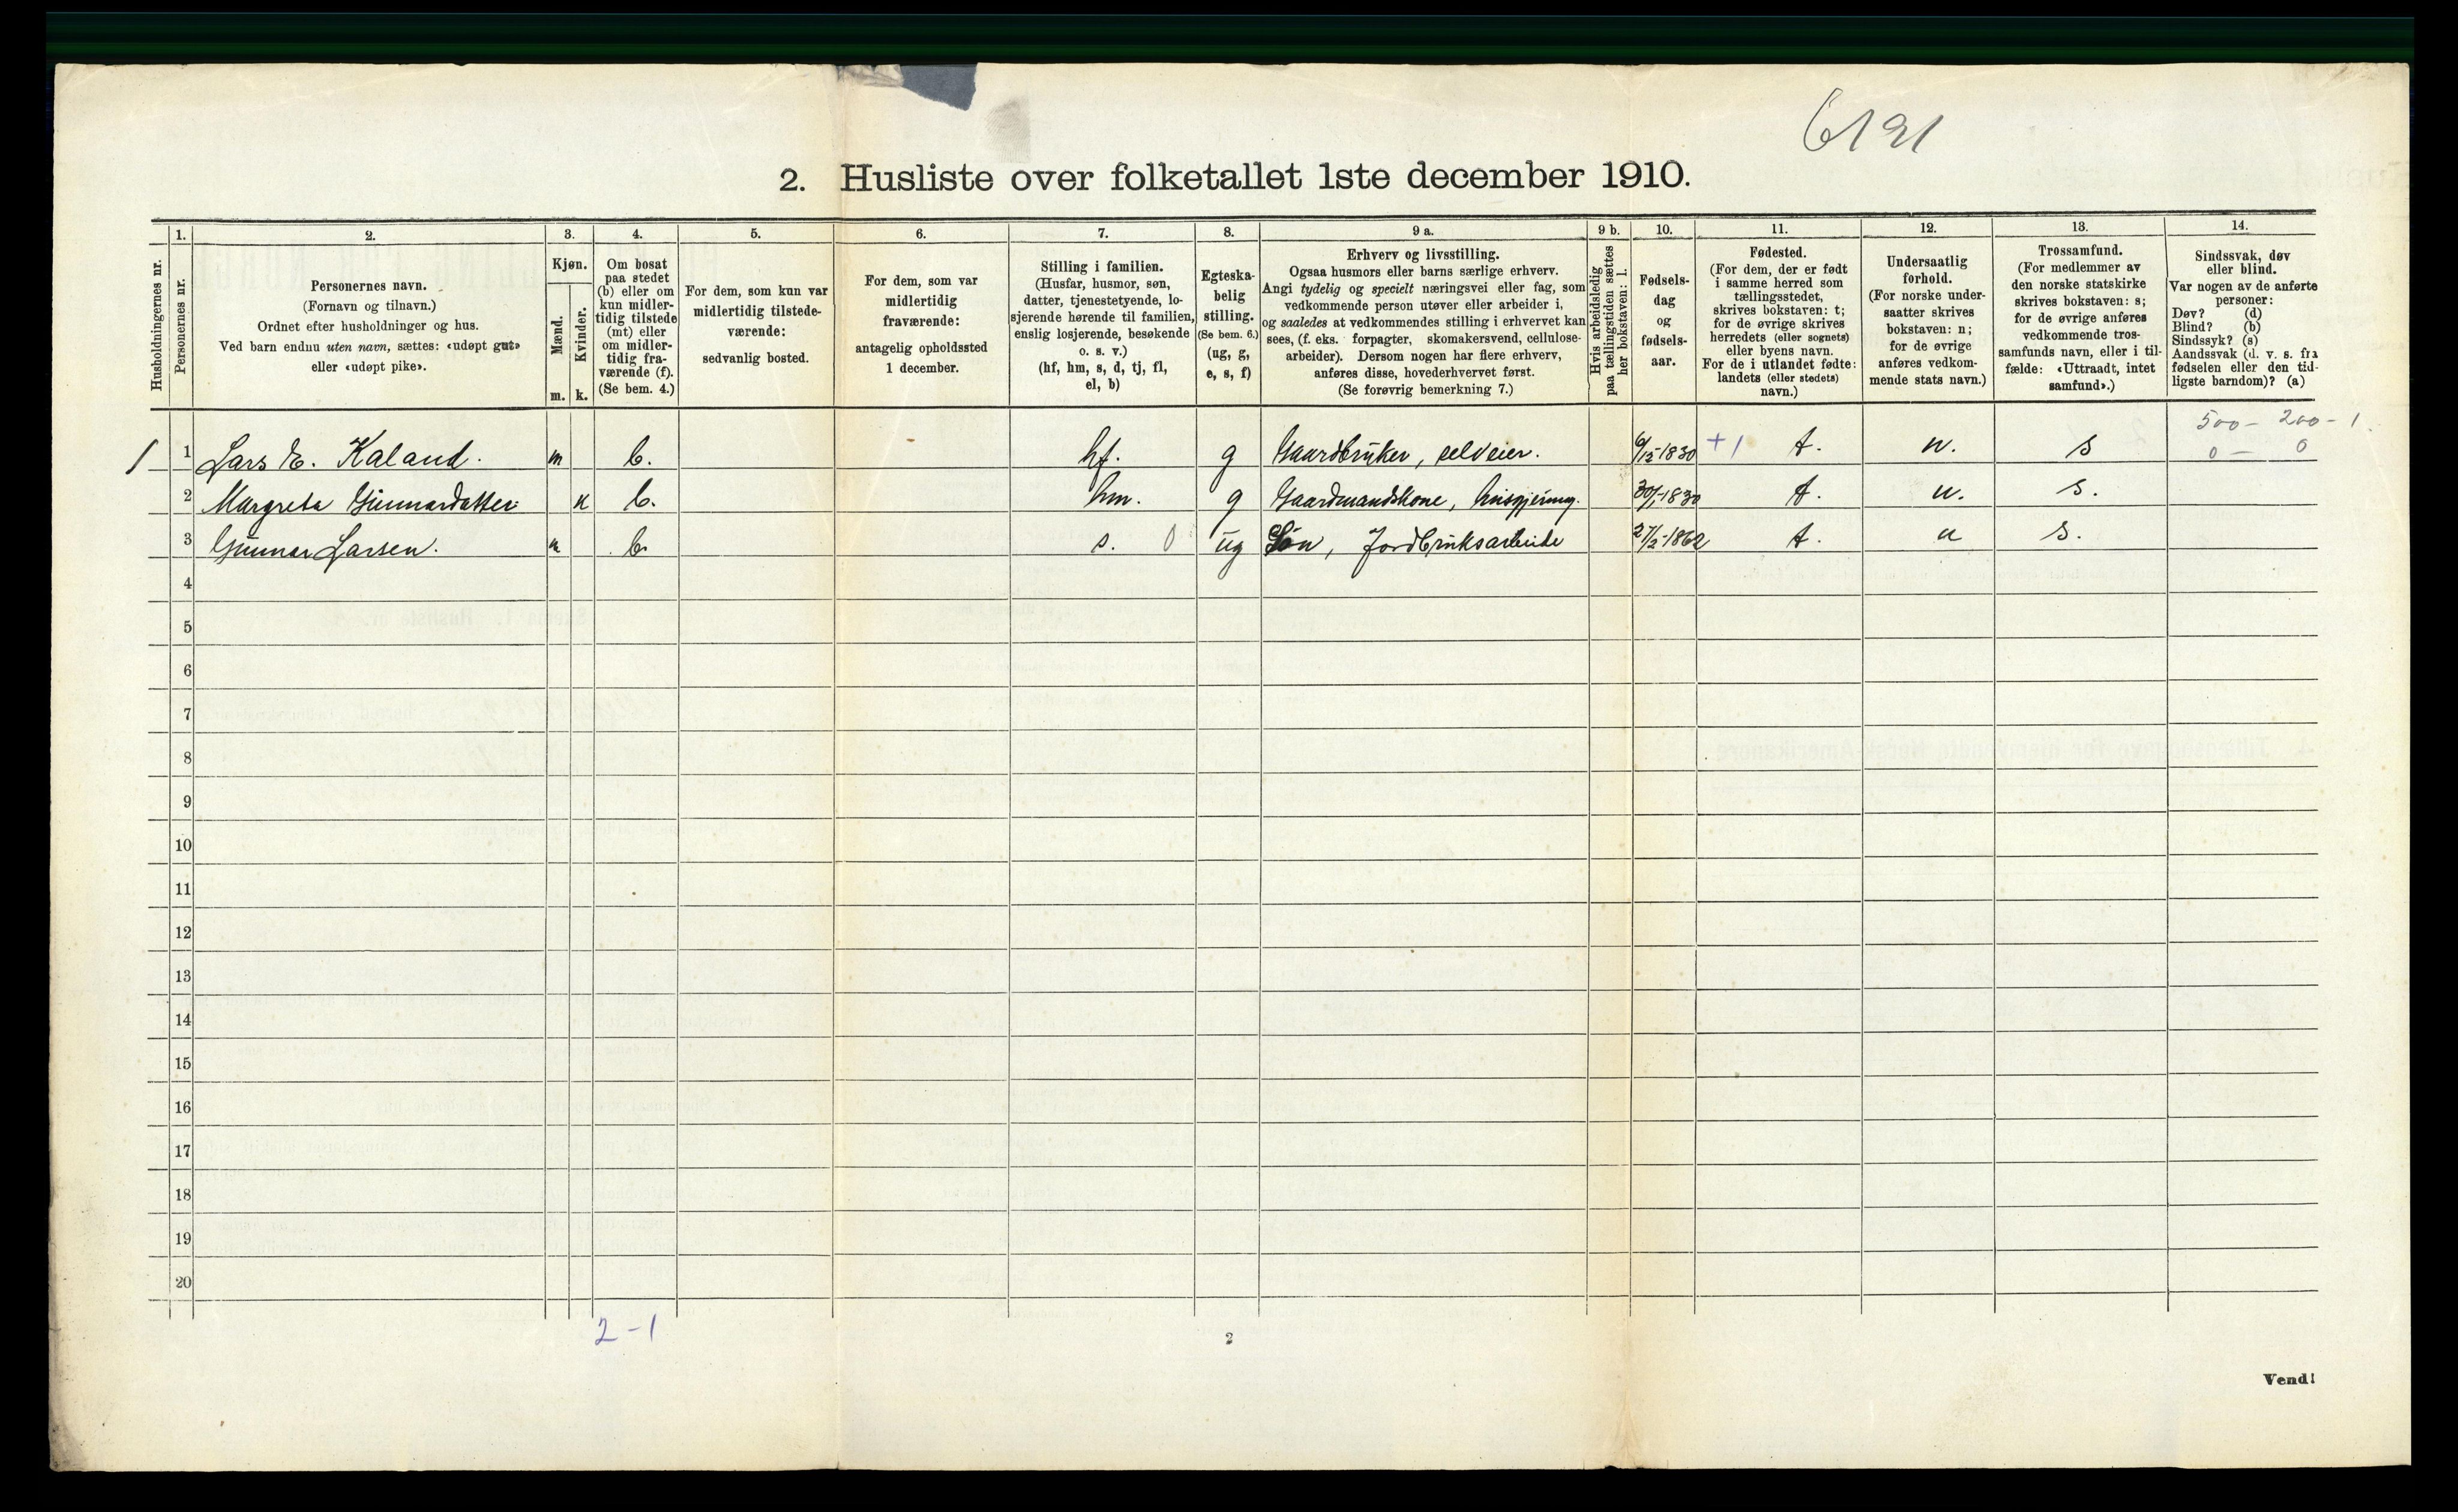 6191
2. Husliste over folketallet 1ste december 1910.
Husholdningernes nr.
1.
Personernes nr.
2.
Personernes navn.
(Fornavn og tilnavn.)
Ordnet efter husholdninger og hus.
Ved barn endnu uten navn, sættes: «udøpt gut»
eller «udøpt pike».
3.
Kjøn.
Mænd.
Kvinder.
m. k.
4.
Om bosat
paa stedet
(b) eller om
kun midler-
tidig tilstede
(mt) eller
om midler-
tidig fra-
værende (f).
(Se bem. 4.)
5.
For dem, som kun var
midlertidig tilstede-
værende:
sedvanlig bosted.
6.
For dem, som var
midlertidig
fraværende:
antagelig opholdssted
1 december.
7.
Stilling i familien.
(Husfar, husmor, søn,
datter, tjenestetyende, lo-
sjerende hørende til familien,
enslig losjerende, besøkende
o. s. v.)
(hf, hm, s, d, tj, fl,
el, b)
8.
Egteska-
belig
stilling.
(Se bem. 6.)
(ug, g,
e, s, f)
9 a.
Erhverv og livsstilling.
Ogsaa husmors eller barns særlige erhverv.
Angi tydelig og specielt næringsvei eller fag, som
vedkommende person utøver eller arbeider i,
og saaledes at vedkommendes stilling i erhvervet kan
sees, (f. eks. forpagter, skomakersvend, cellulose-
arbeider). Dersom nogen har flere erhverv,
anføres disse, hovederhvervet først.
(Se forøvrig bemerkning 7.)
9 b.
Hvis arbeidsledig
paa tællingstiden sættes
her bokstaven: l.
10.
Fødsels-
dag
og
fødsels-
aar.
11.
Fødested.
(For dem, der er født
i samme herred som
tællingsstedet,
skrives bokstaven: t;
for de øvrige skrives
herredets (eller sognets)
eller byens navn.
For de i utlandet fødte:
landets (eller stedets)
navn.)
12.
Undersaatlig
forhold.
(For norske under-
saatter skrives
bokstaven: n;
for de øvrige
anføres vedkom-
mende stats navn.)
13.
Trossamfund.
(For medlemmer av
den norske statskirke
skrives bokstaven: s;
for de øvrige anføres
vedkommende tros-
samfunds navn, eller i til-
fælde: «Uttraadt, intet
samfund».)
14.
Sindssvak, døv
eller blind.
Var nogen av de anførte
personer:
Døv? (d)
Blind? (b)
Sindssyk? (s)
Aandssvak (d. v. s. fra
fødselen eller den tid-
ligste barndom)? (a)
500 - 200 - 1
1 1 Lars E. Kaland. m b. hf. g Gaardbruker, selveier. 6/12-1830 +1 t. n. s 0 - 0
2 Margreta Gunnardatter k b. hm. g Gaardmandskone, husgjerning. 30/1-1830 t. n. s.
3 Gunnar Larsen. m b. s. 0 ug Søn, Jordbruksarbeide 27/2-1862 t. n s.
4
5
6
7
8
9
10
11
12
13
14
15
16
17
18
19
20
2-1
2
Vend!